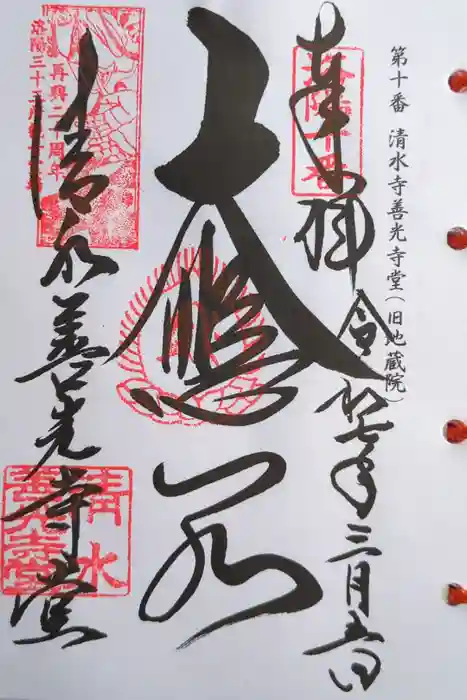 第十番 清水寺善光寺堂(旧地蔵院)
奉拝 令和七年三月五日
洛陽十番
大悲閣
清水善光寺堂
洛陽三十三所観音霊場
再興二十周年
清水
善光寺堂